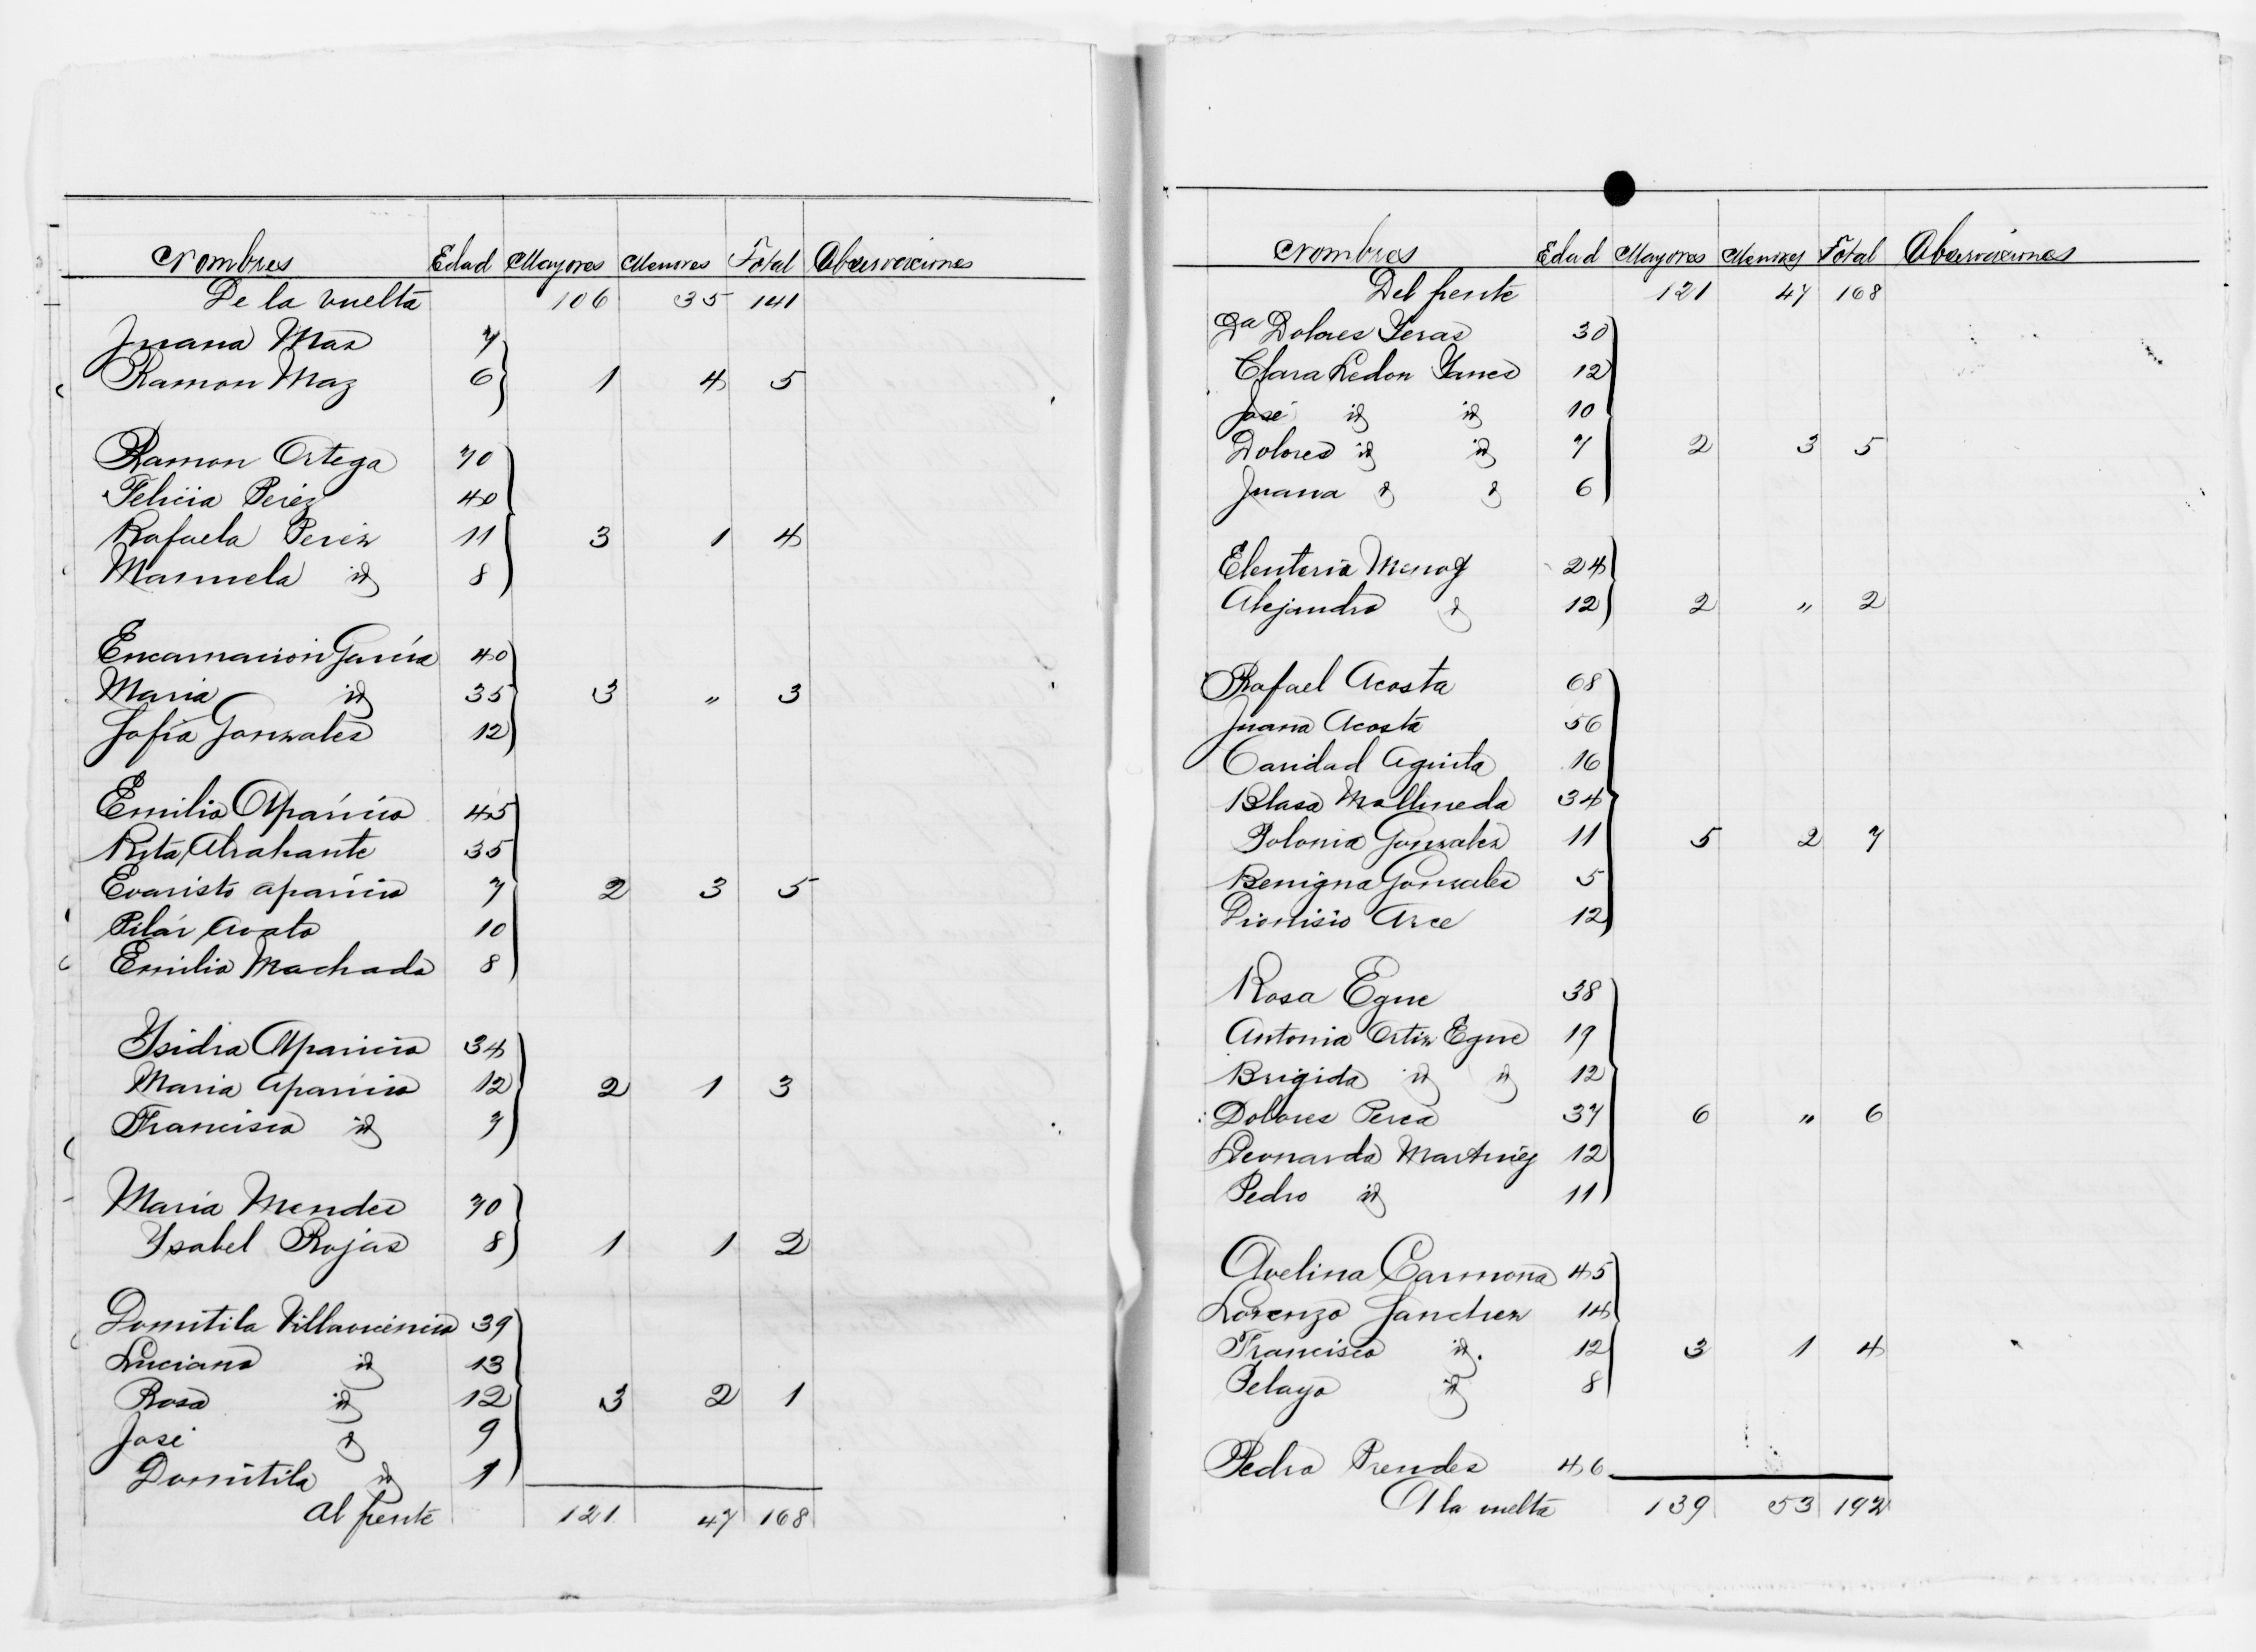 Nombres Edad Mayores Menores Total Observaciones
De la vuelta 106 35 141
Juana Mas 7
Ramon Maz 6 1 4 5
Ramon Ortega 70
Felicia Perez 40
Rafaela Perez 11 3 1 4
Manuela id 8
Encarnacion García 40
Maria id 35 3 " 3
Sofía Gonzales 12
Emilio Aparicio 45
Rita Abrahante 35
Evaristo Aparicio 7 2 3 5
Pilár 10
Emilio Machado 8
Ysidra Aparicio 34
Maria Aparicio 12 2 1 3
Francisca id 7
Maria Mendes 70
Ysabel Rojas 8 1 1 2
Domitila Villavicencio 39
Luciano id 13
Rosa id 12 3 2 1
José id 9
Domitila id 1
Al frente 121 47 168
Nombres Edad Mayores Menores Total Observaciones
Del frente 121 47 168
Da Dolores 30
Clara Ledon Yanes 12
José id id 10
Dolores id id 7 2 3 5
Juana id id 6
Eleuteria 24
Alejandro id 12 2 " 2
Rafael Acosta 68
Juana Acosta 56
Caridad 16
Blasa Mollineda 34
Polonia Gonzalez 11 5 2 7
Benigna Gonzales 5
Dionisio Arce 12
Rosa Egue 38
Antonia Ortiz Egue 19
Brigida id id 12
Dolores Perea 37 6 " 6
Leonarda Martinez 12
Pedro id 11
Avelina Carmona 45
Lorenzo Sanchez 14
Francisco id. 12 3 1 4
Pelayo id 8
Pedro Prendes 46
A la vuelta 139 53 192